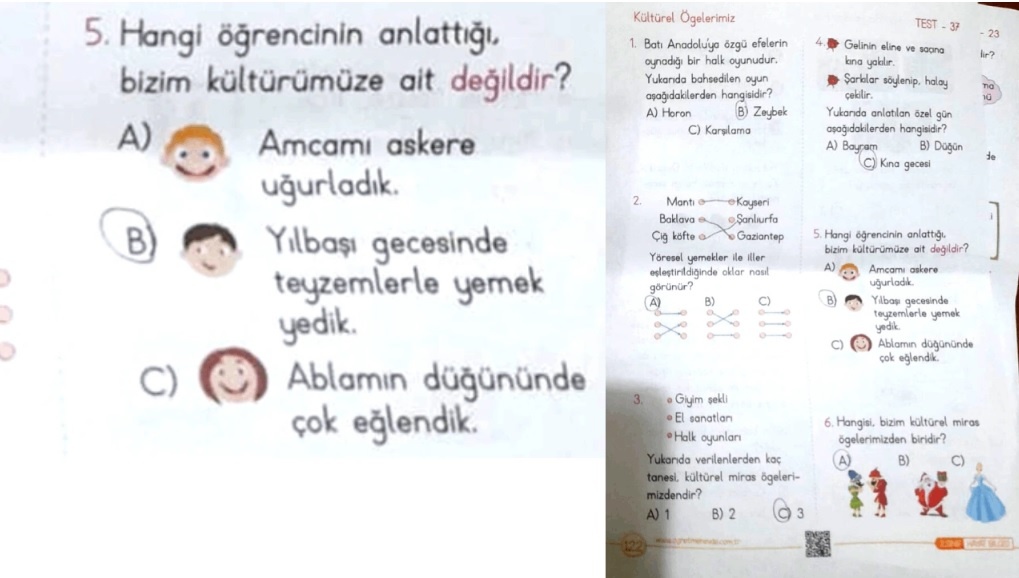 5. Hangi öğrencinin anlattığı,
bizim kültürümüze ait değildir?
A) Amcamı askere
uğurladık.
B) Yılbaşı gecesinde
teyzemlerle yemek
yedik.
C) Ablamın düğününde
çok eğlendik.
Kültürel Ögelerimiz
TEST - 37
1. Batı Anadolu'ya özgü efelerin
oynadığı bir halk oyunudur.
Yukarıda bahsedilen oyun
aşağıdakilerden hangisidir?
A) Horon B) Zeybek
C) Karşılama
2. Mantı Kayseri
Baklava Şanlıurfa
Çiğ köfte Gaziantep
Yöresel yemekler ile iller
eşleştirildiğinde oklar nasıl
görünür?
A) B) C)
3. Giyim şekli
El sanatları
Halk oyunları
Yukarıda verilenlerden kaç
tanesi, kültürel miras ögeleri-
mizdendir?
A) 1 B) 2 C) 3
4. Gelinin eline ve saçına
kına yakılır.
Şarkılar söylenip, halay
çekilir.
Yukarıda anlatılan özel gün
aşağıdakilerden hangisidir?
A) Bayram B) Düğün
C) Kına gecesi
5. Hangi öğrencinin anlattığı,
bizim kültürümüze ait değildir?
A) Amcamı askere
uğurladık.
B) Yılbaşı gecesinde
teyzemlerle yemek
yedik.
C) Ablamın düğününde
çok eğlendik.
6. Hangisi, bizim kültürel miras
ögelerimizden biridir?
A) B) C)
122
HAYAT BİLGİSİ
- 23
lir?
de